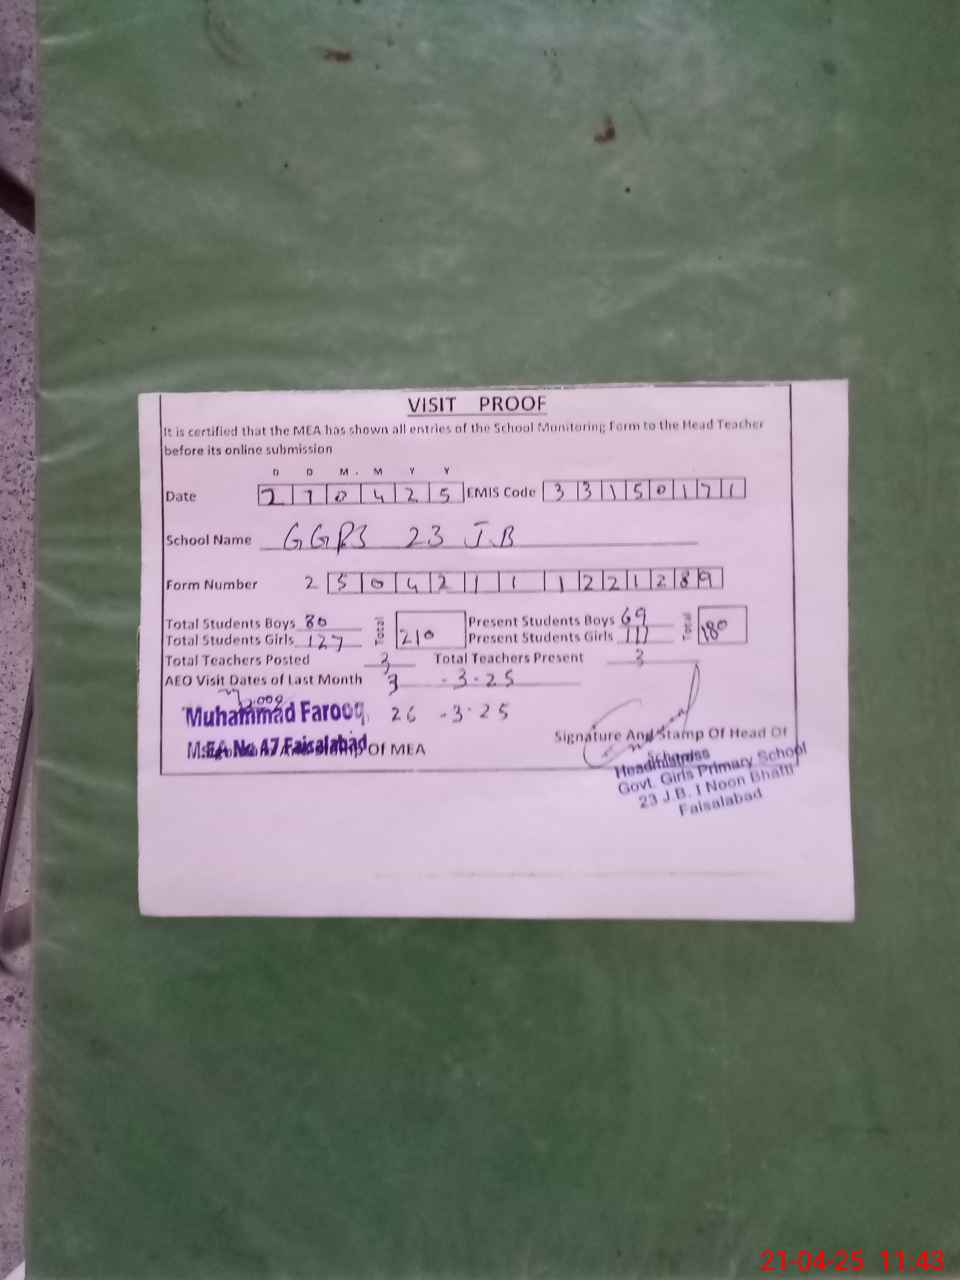 VISIT PROOF
It is certified that the MEA has shown all entries of the School Monitoring Form to the Head Teacher
before its online submission
D D M . M Y Y
Date 2 1 0 4 2 5 EMIS Code 3 3 1 5 0 1 7 1
School Name GGPS 23 J.B
Form Number 2 5 0 4 2 1 1 1 2 2 1 2 8 9
Total Students Boys 80 Total 210 Present Students Boys 69 Total 180
Total Students Girls 127 Present Students Girls 111
Total Teachers Posted 3 Total Teachers Present 3
AEO Visit Dates of Last Month 3 -3-25
Muhammad Farooq 26 -3-25
MEA No 47 Faisalabad Of MEA
Signature And Stamp Of Head Of
Headmistress
Govt. Girls Primary School
23 J.B. I Noon Bhatti
Faisalabad
21-04-25 11:43